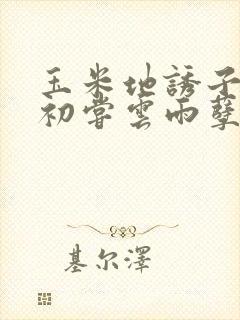 玉米地誘子
初嘗雲雨孽
基尔澤